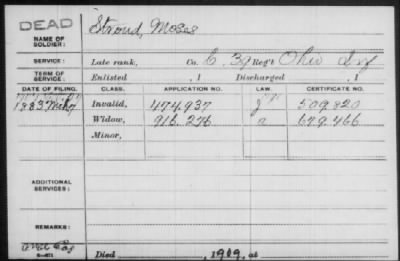 DEAD
NAME OF SOLDIER: Stroud, Moses
SERVICE: Late rank, Co. C, 39 Reg't Ohio Inf
TERM OF SERVICE: Enlisted , 1 Discharged , 1
DATE OF FILING. CLASS. APPLICATION NO. LAW. CERTIFICATE NO.
1883 Invalid, 474.937 509.320
Widow, 916.276 679.466
Minor,
ADDITIONAL SERVICES:
REMARKS:
Died , 1909, at